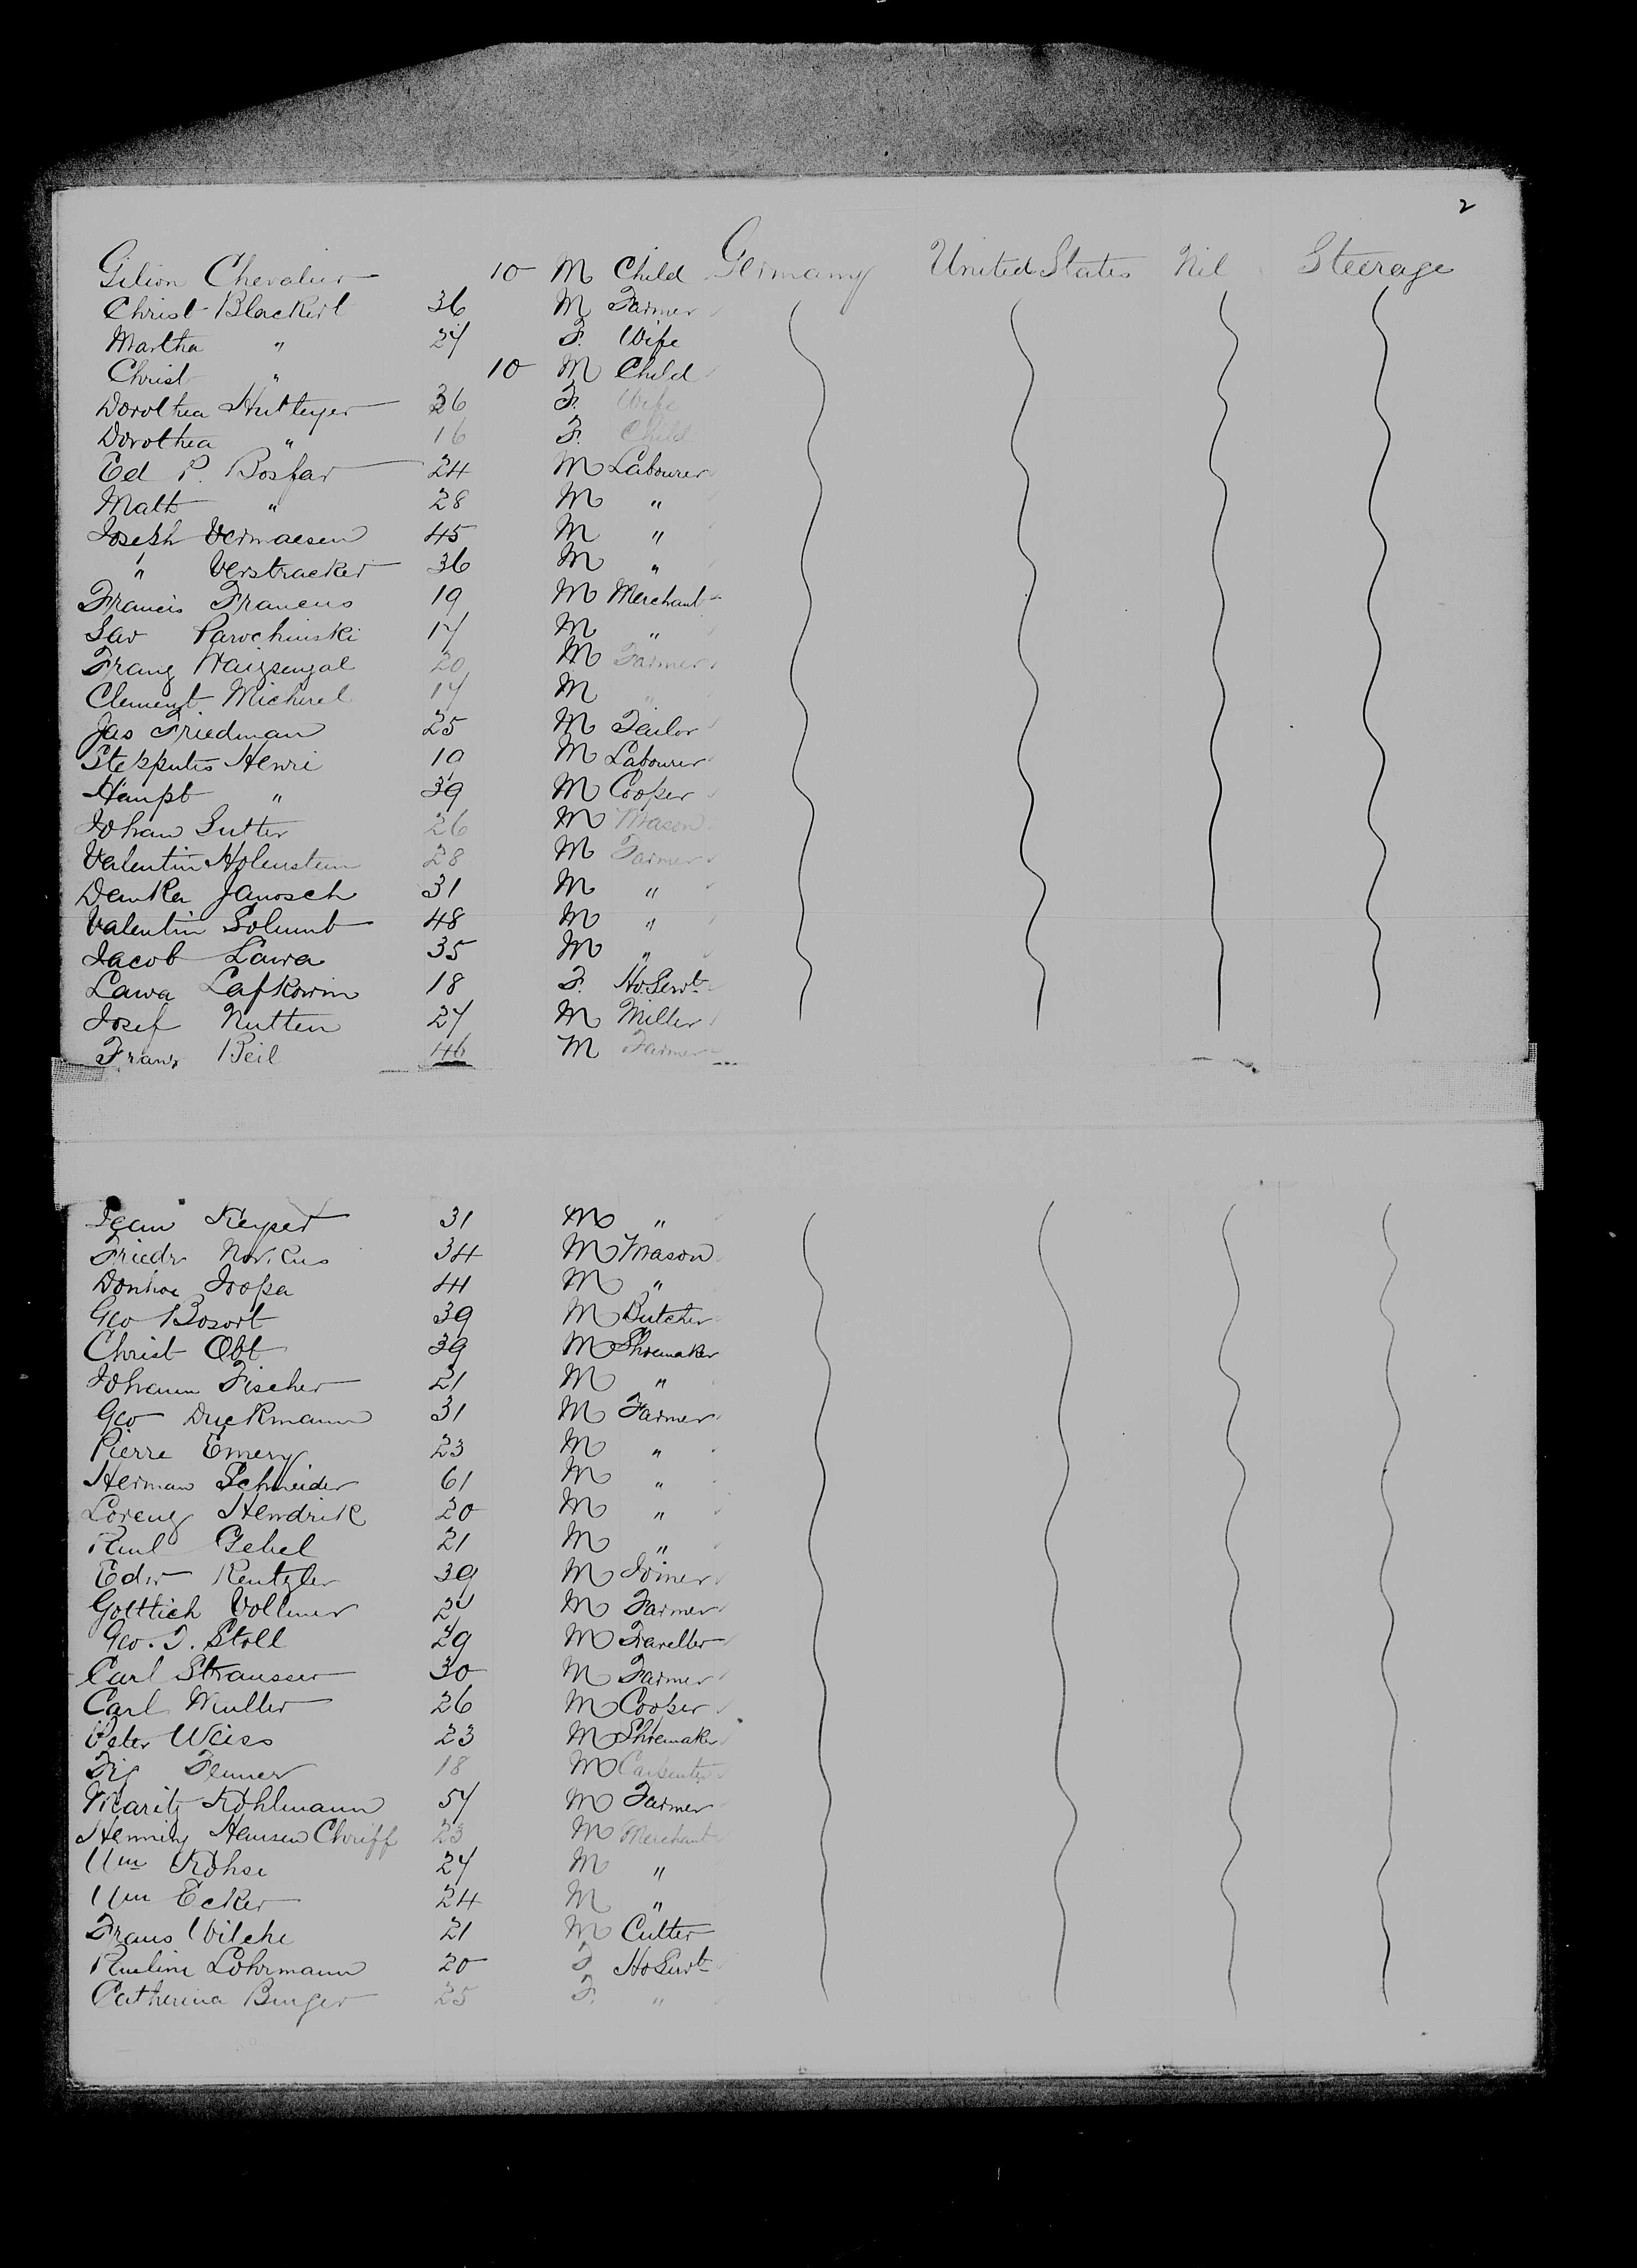 2
Gilion Chevalier 10 M Child Germany United States Nil Steerage
Christ Blackert 36 M Farmer
Martha " 27 F. Wife
Christ " 10 M Child
Dorothea 36 F. Wife
Dorothea " 16 F. Child
Ed P. Bosfar 24 M Labourer
Math " 28 M "
Joseph Vermaesen 45 M "
" Verstracker 36 M "
Francis Francus 19 M Merchant
Sav Parochinski 17 M "
Franz 20 M Farmer
Clement Micherel 17 M "
Jas Friedman 25 M Tailor
Stepputis Henri 19 M Labourer
Haupt " 39 M Cooper
Johan Sutter 26 M Mason
Valentin Holenstein 28 M Farmer
Danka Janosch 31 M "
Valentin Solumb 48 M "
Jacob Lawa 35 M "
Lawa Lafkowin 18 F. Ho. Servt
Josef Nutten 27 M Miller
Franz Beil 46 M Farmer
Keyser 31 M "
Friedr Novikus 34 M Mason
Donhoe Iropa 41 M "
Geo Bosort 39 M Butcher
Christ Obt 39 M Shoemaker
Johann Fischer 21 M "
Geo Dyckmann 31 M Farmer
Pierre Emery 23 M "
Herman Schneider 61 M "
Lorenz Hendrik 20 M "
Paul Gebel 21 M "
Edw Rentzler 39 M Joiner
Gottlich Vollmer 27 M Farmer
Geo. T. Stoll 29 M Traveller
Carl Strausser 30 M Farmer
Carl Muller 26 M Cooper
Peter Weiss 23 M Shoemaker
Fenner 18 M Carpenter
Maritz Kohlmann 57 M Farmer
Henning Hansen Chriff 23 M Merchant
Wm Kohse 27 M "
Wm Ecker 24 M "
Frans Wilche 21 M Cutter
Pauline Lohrmann 20 F Ho Servt
Catherina Burger 25 F. "